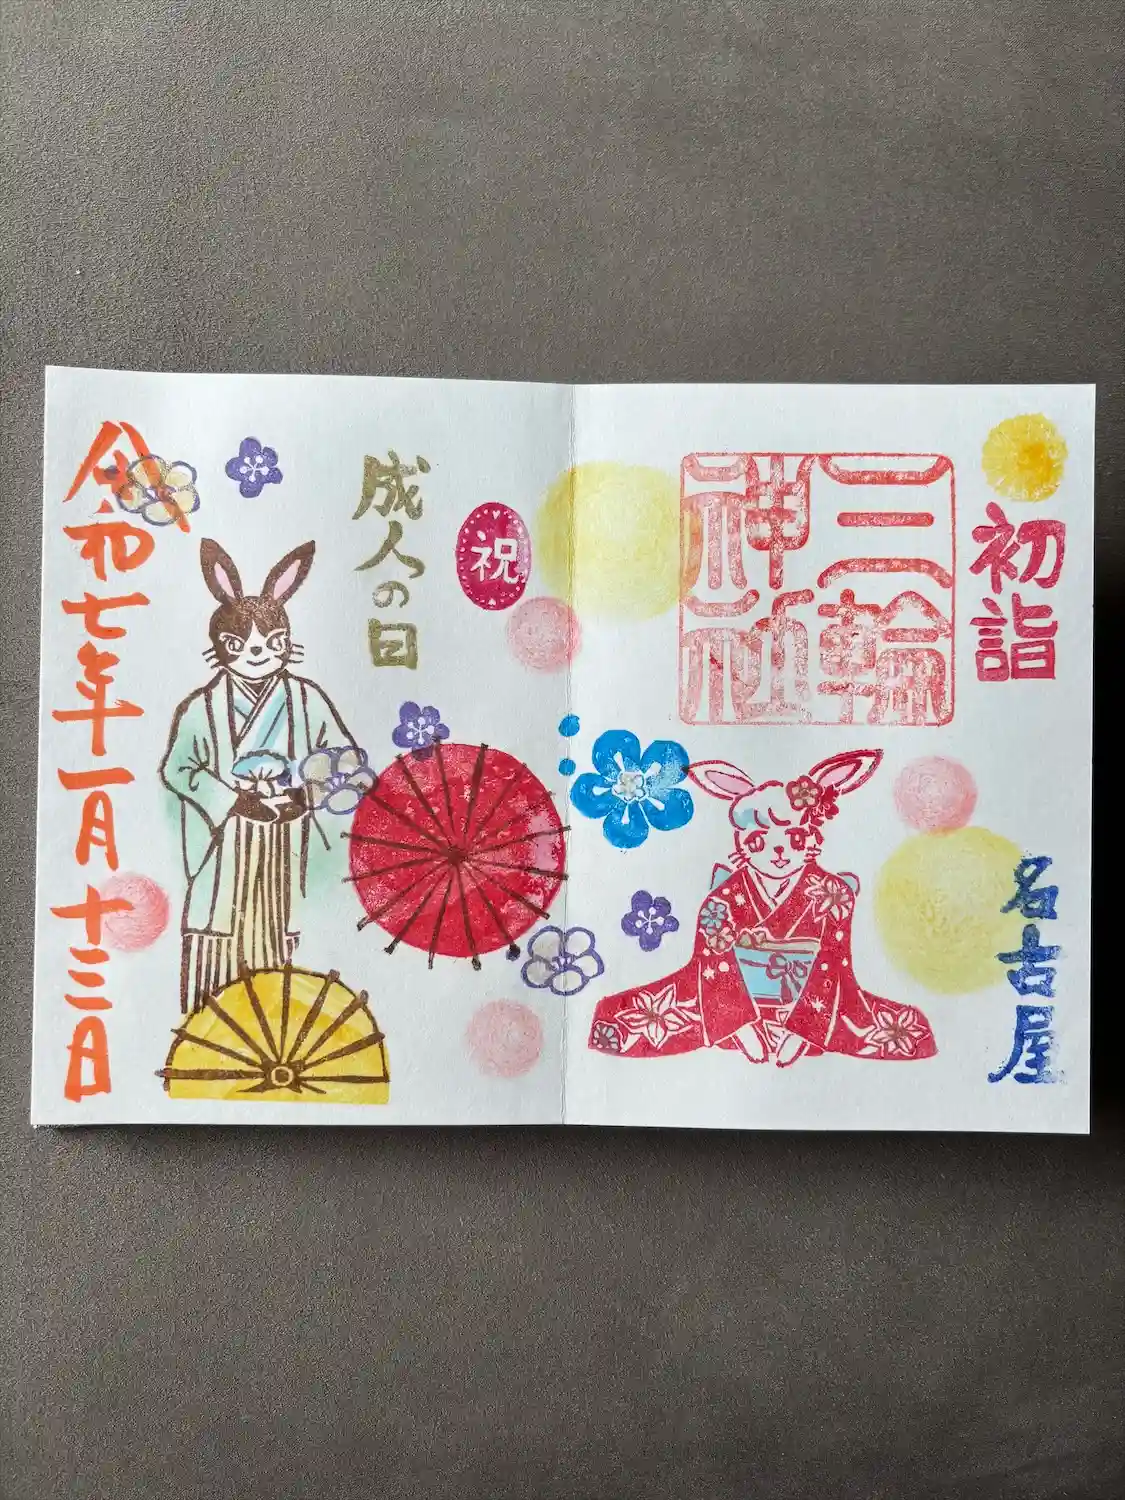 初詣
名古屋
三輪
神社
祝
成人の日
令和七年一月十三日